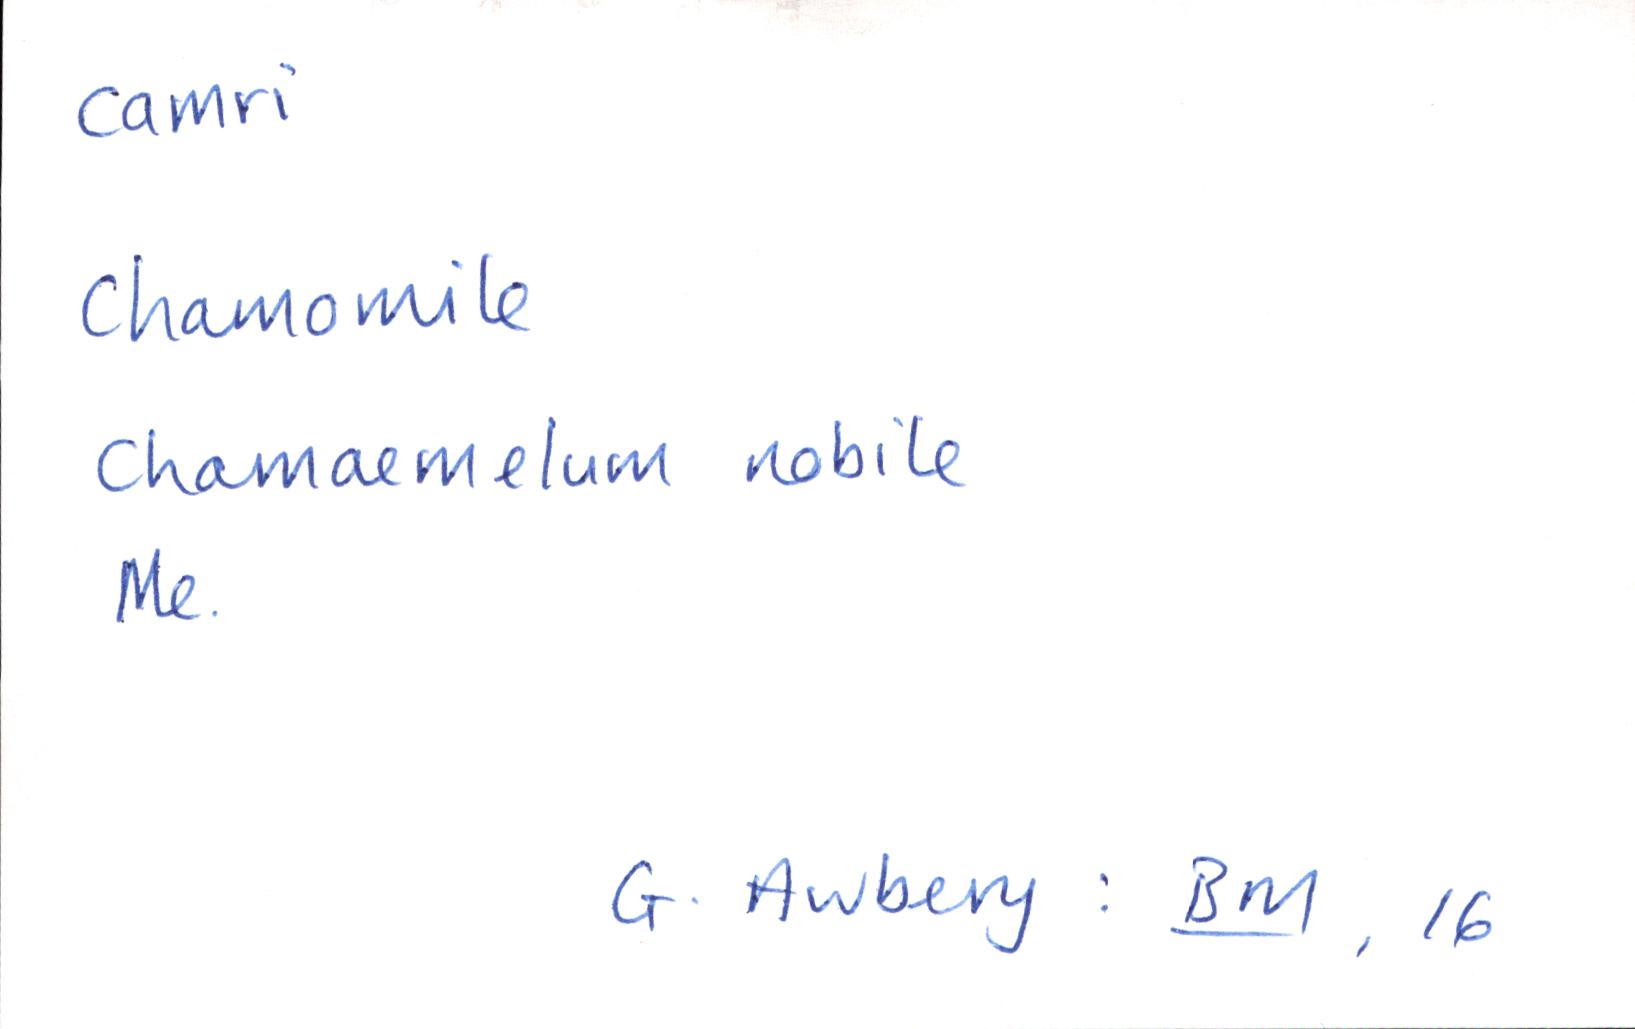 camri
Chamomile
Chamaemelum nobile
Me.
G. Awbery : BM, 16